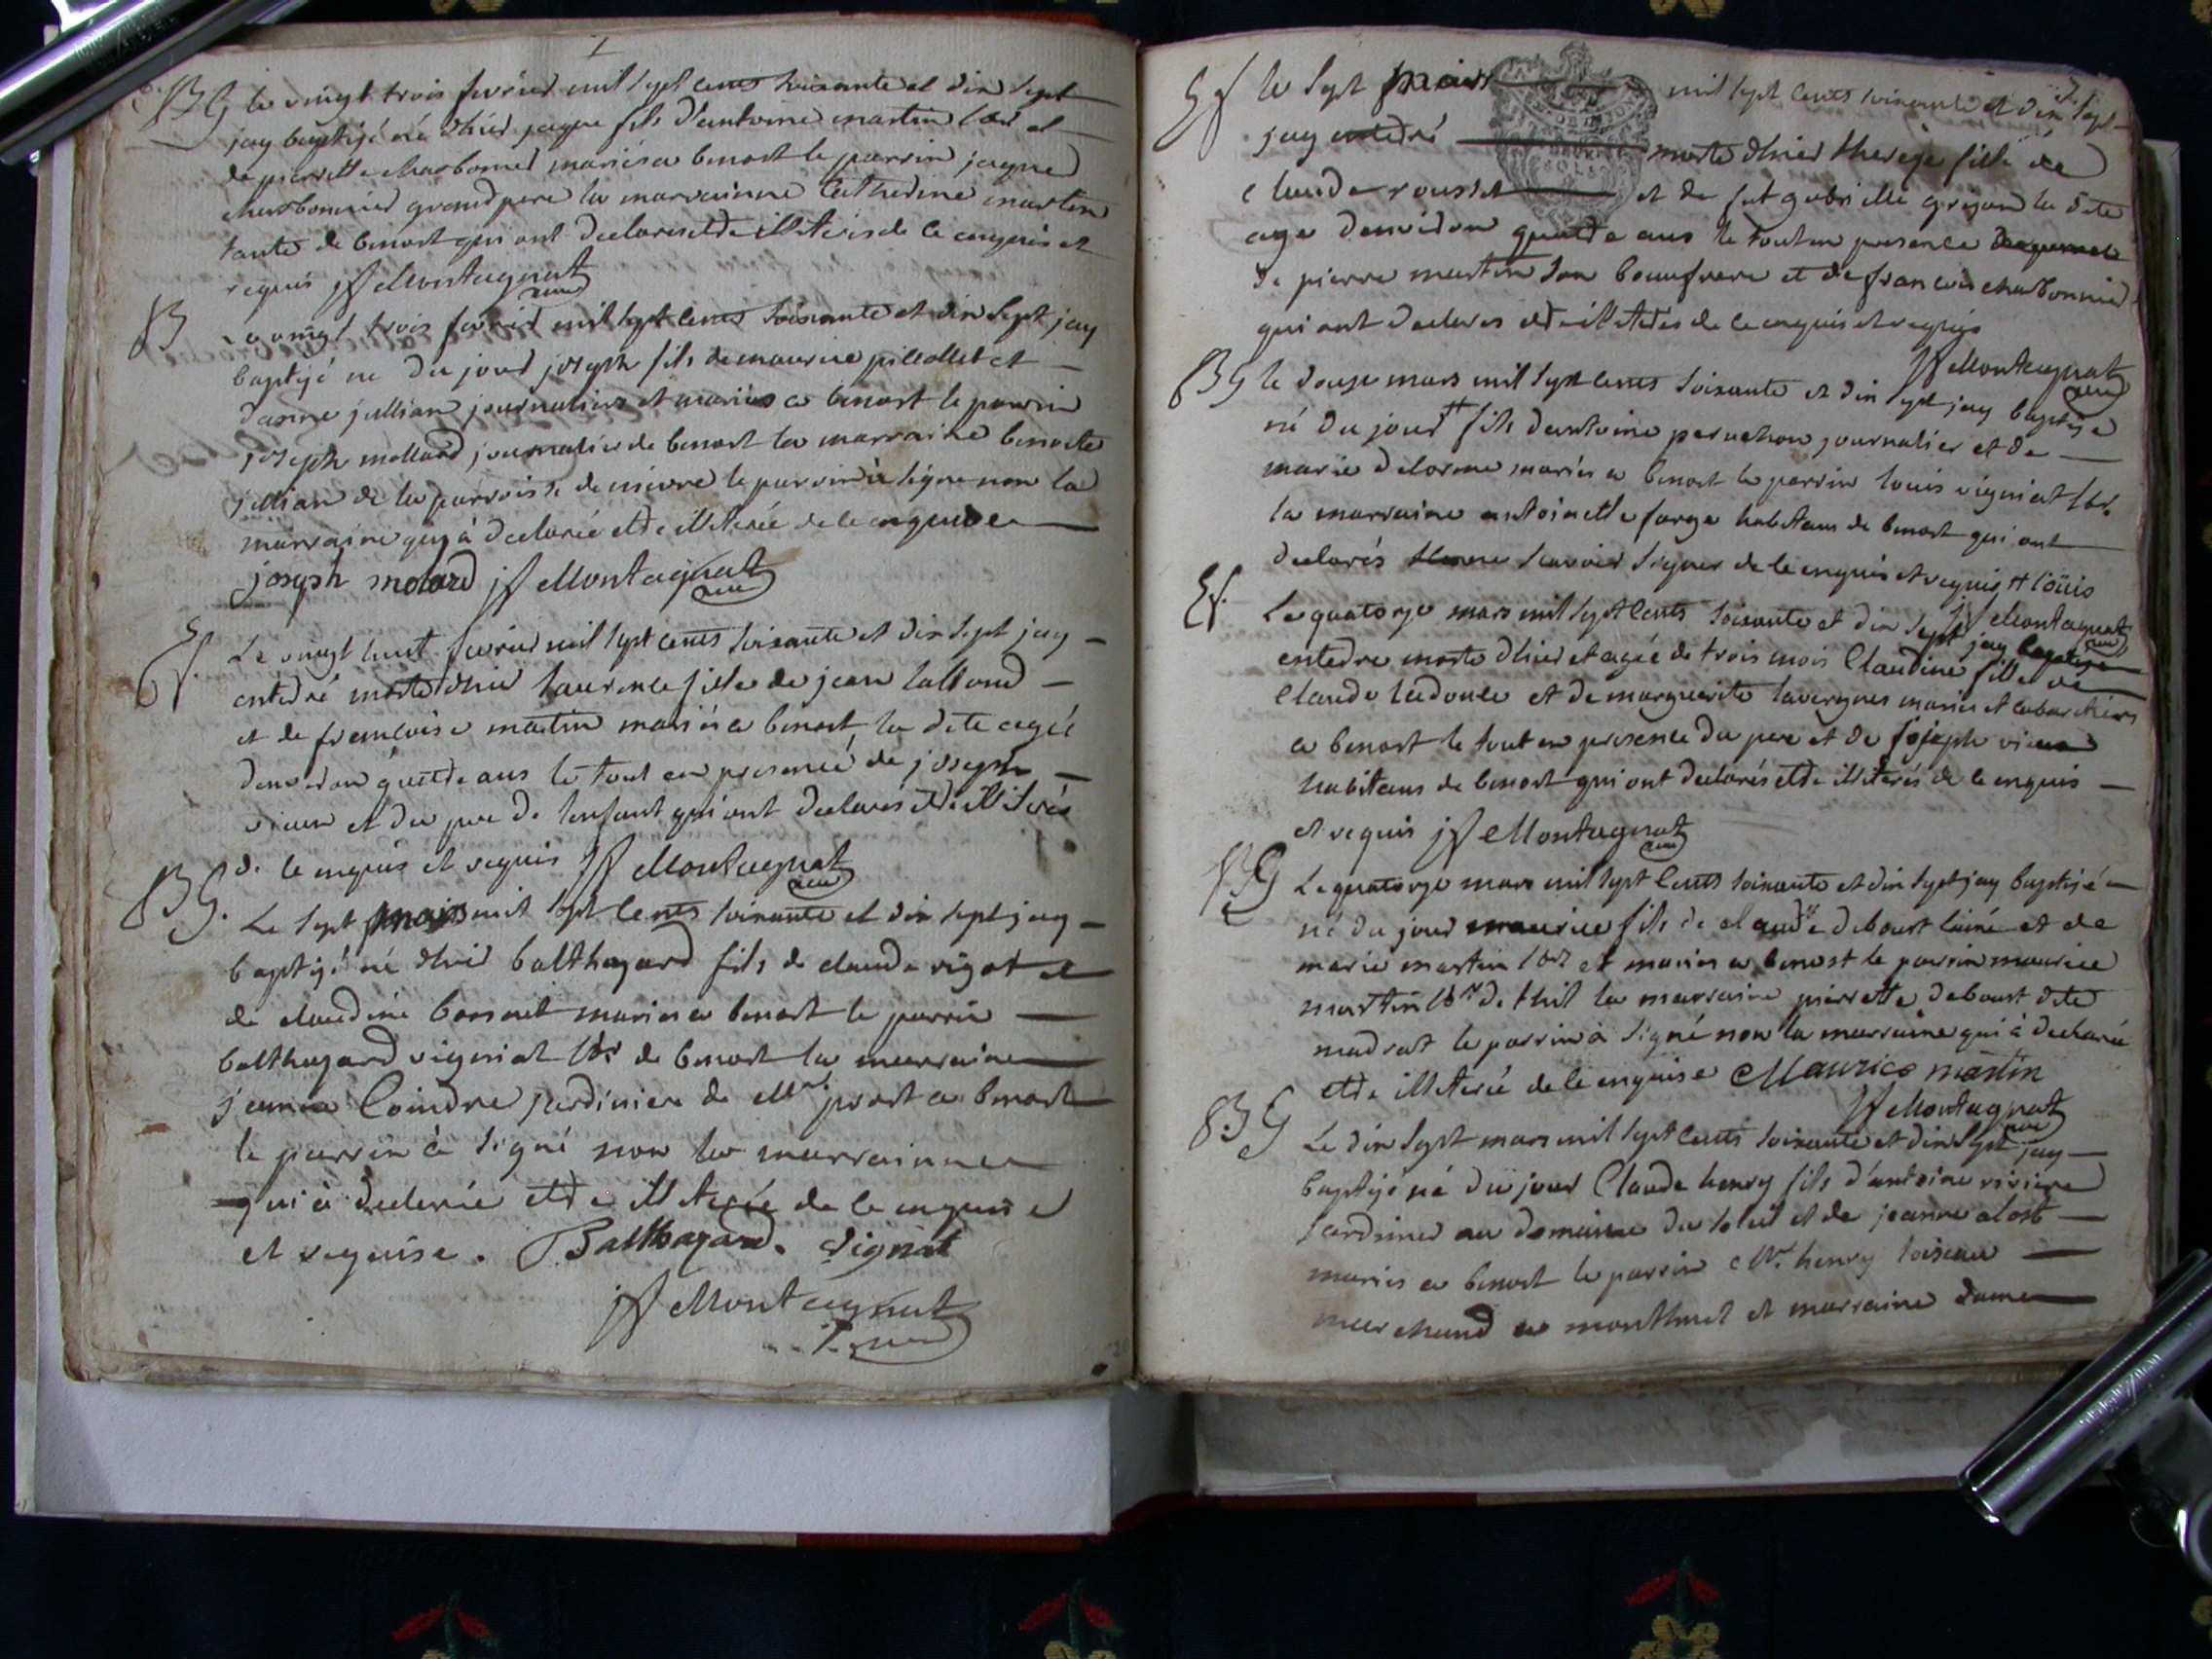 BG le vingt trois fevrier mil sept cents soixante et dix sept
jay baptisé né d'hier jaque fils d'antoine martin lab et
de pierrette charbonnier mariés a benost le parrin jaque
charbonnier grand pere la marrainne Catherine martin
tante de benost qui ont declarés etre illiterés de ce enquis et
requis jf Montagnat curé
B Le vingt trois fevrier mil sept cents soixante et dix sept jay
baptisé né du jour joseph fils de maurice pillollet et
danne jullian journaliers et mariés a benost le parrin
joseph mollard journalier de benost la marraine benoite
jullian de la parroisse de mievre le parrin à signe non la
marraine qui à declarée etre illiterée de le enquise
joseph molard jf Montagnat curé
Ef. Le vingt huit fevrier mil sept cents soixante et dix sept jay
enterré morte d'hier laurence fille de jean lallond
et de francoise martin mariés a benost la dite agée
d'environ quatre ans le tout en presence de joseph
vian et du pere de l'enfant qui ont declarés etre illiterés
de le enquis et requis jf Montagnat curé
BG. Le sept mars mil sept cents soixante et dix sept jay
baptisé né d'hier balthazard fils de claude rigot et
de claudine bonnet mariés a benost le parrin
balthazard vigniat lbr de benost la marraine
jeanne Coindre jardiniere de Mr prost a benost
le parrin à signé non la marrainne
qui à declerée etre illiterée de le enquise
et requise. Balthazard. vignat
jf Montagnat
curé
7.
Ef le sept mars mil sept cents soixante et dix sept
jay enterré morte d'hier therese fille de
claude rousset et de fut gabrielle grejon la dite
age d'environ quatre ans le tout en presence
de pierre martin son beaufrere et de francois charbonnier
qui ont declares etre illiterés de le enquis et requis
jf Montagnat curé
BG le douze mars mil sept cents soixante et dix sept jay baptisé
né du jour # fils d'antoine peruchon journalier et de
marie delorme mariés a benost le parrin louis vigniat lbr.
la marraine antoinette farge habitans de benost qui ont
declarés savoir signer de le enquis et requis # loüis
jf Montagnat curé
Ef. Le quatorze mars mil sept cents soixante et dix sept jay baptisé
enterre morte d'hier et agée de trois mois Claudine fille de
Claude ladouce et de marguerite lavergnes mariés et cabartiers
a benost le tout en presence du pere et de joseph vian
habitans de benost qui ont declarés etre illiterés de le enquis
et requis jf Montagnat curé
BG Le quatorze mars mil sept cents soixante et dix sept jay baptisé
né du jour maurice fils de claude debourt lainé et de
marie martin lbr et mariés a benost le parrin maurice
martin lbr de thil la marraine pierrette debourt dite
madrat le parrin à signé non la marraine qui à declarée
etre illiterée de le enquise Maurice martin
jf Montagnat curé
BG Le dix sept mars mil sept cents soixante et dix sept jay
baptisé né du jour Claude henry fils d'antoine riviere
jardinier au domaine du soleil et de jeanne alost
mariés a benost le parrin Mr. henry loiseau
marchand a monthuel et marraine dame